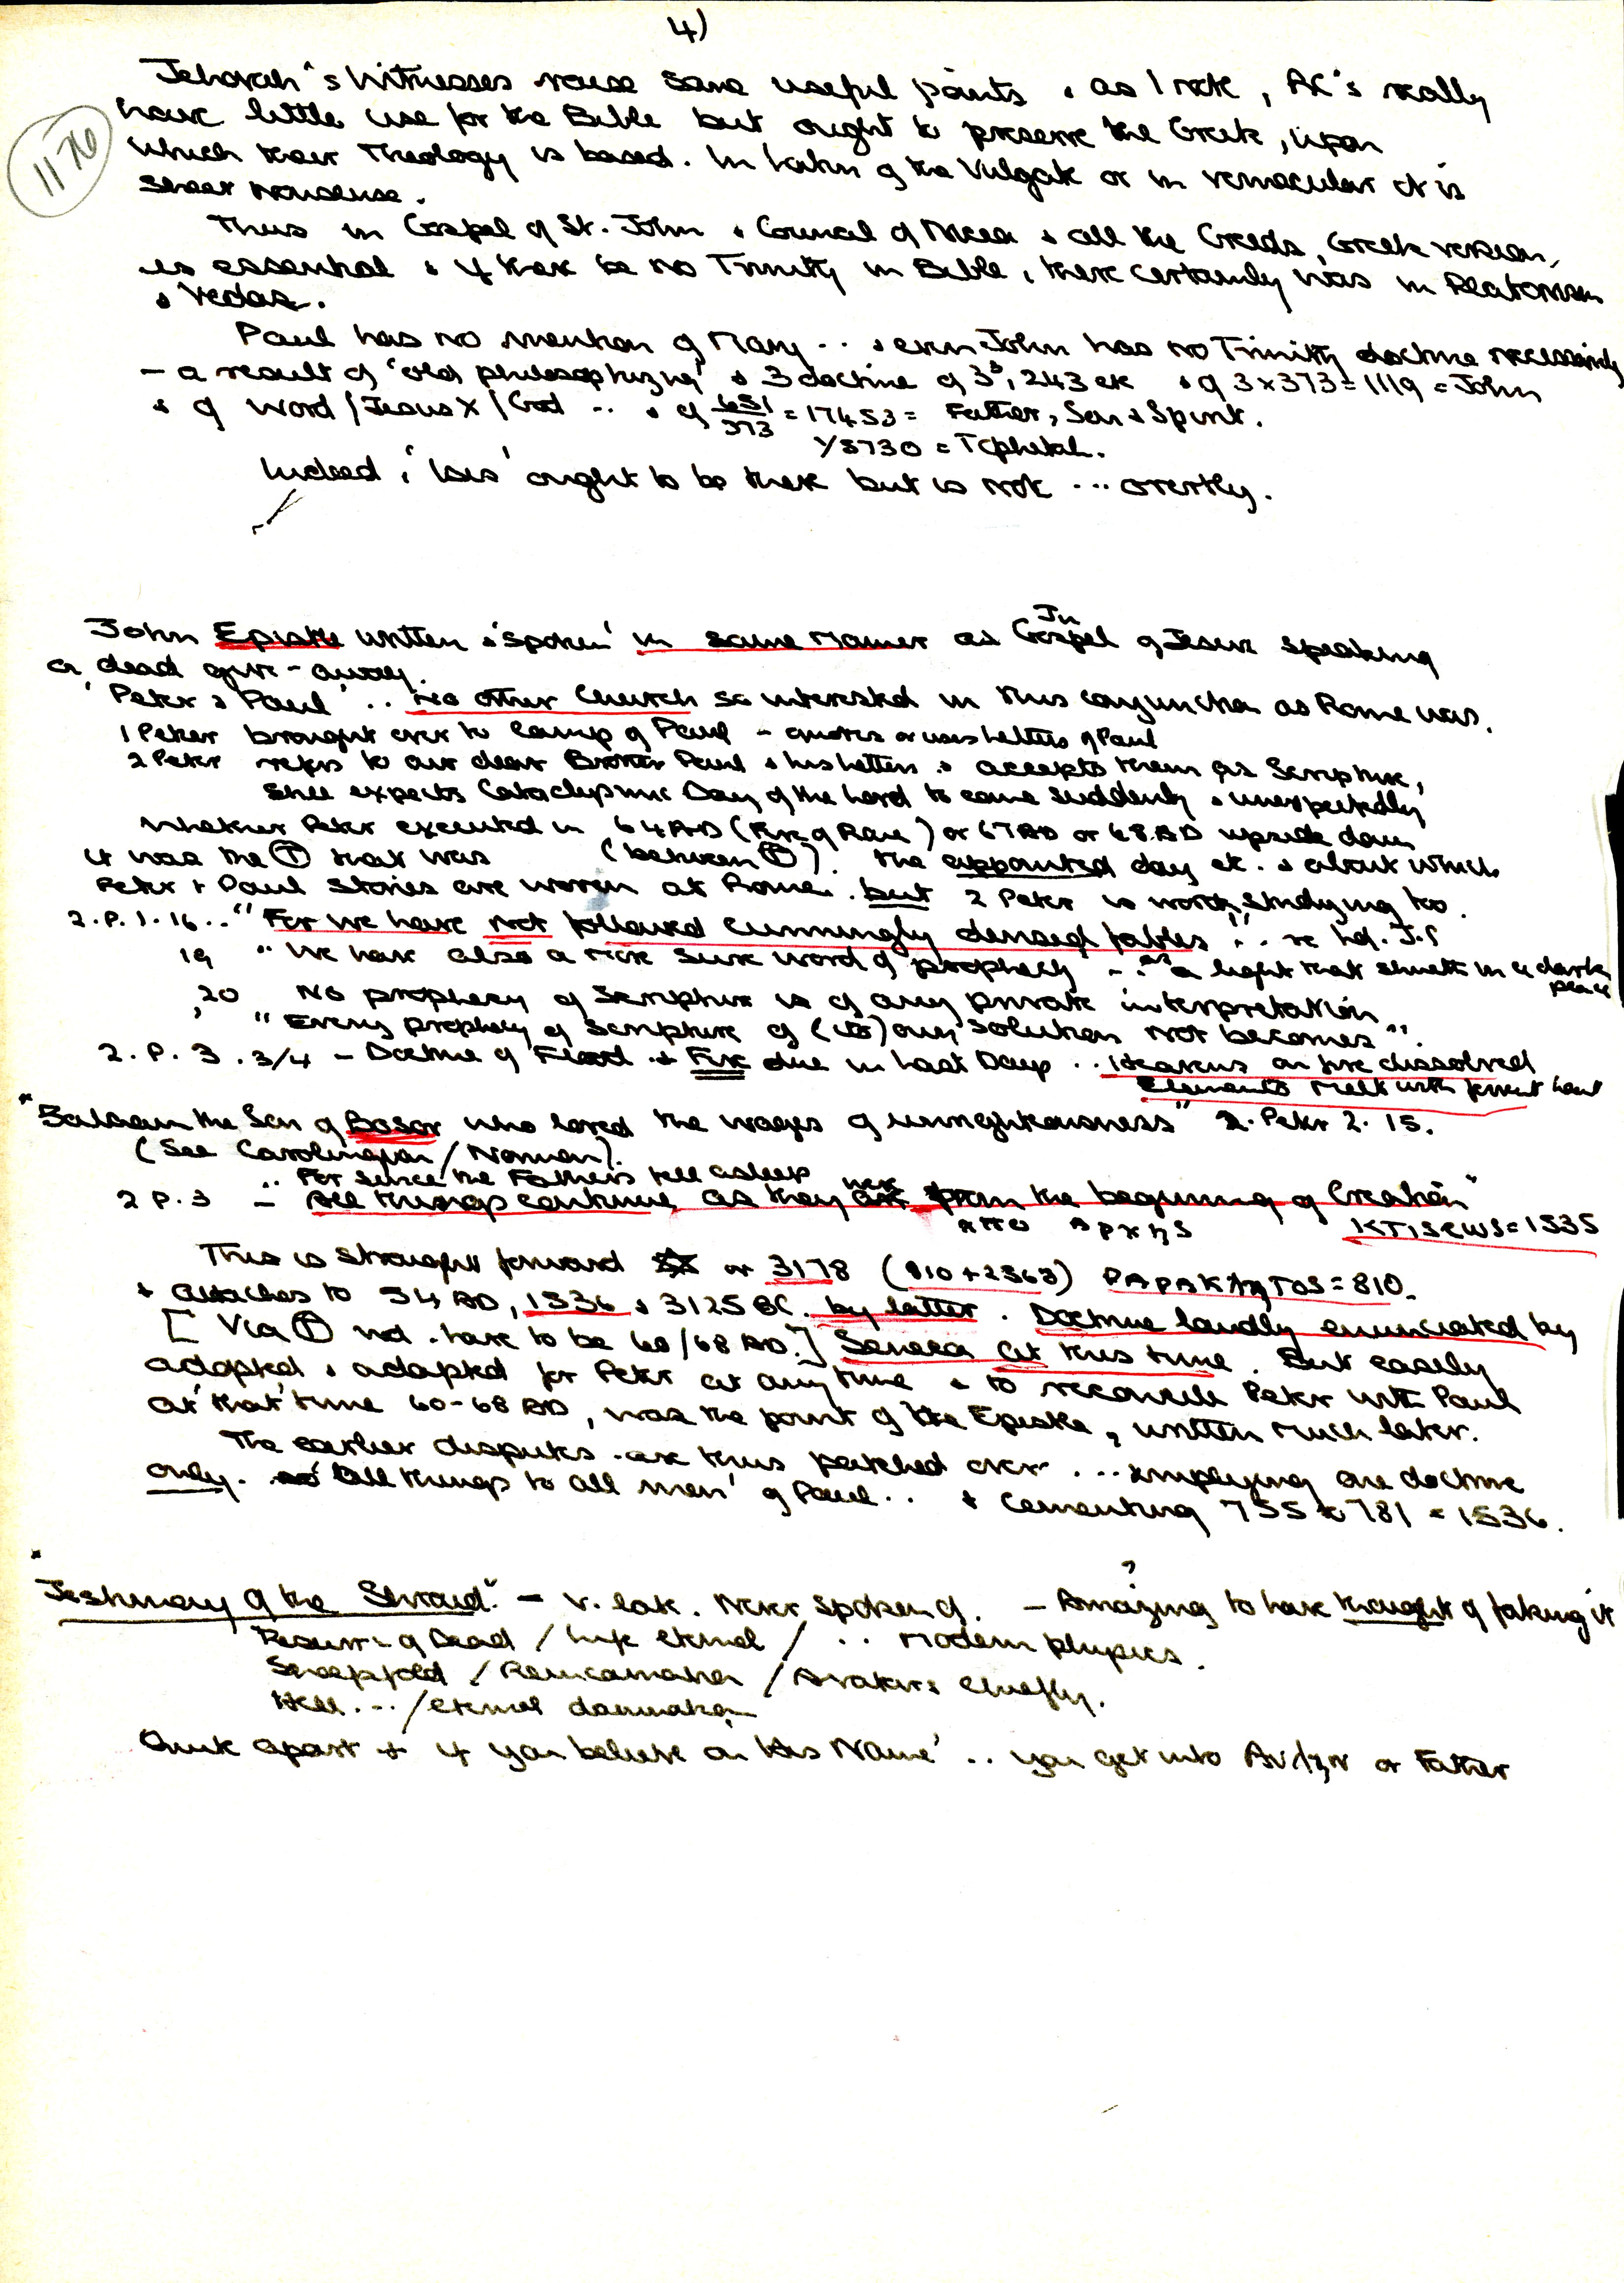 4)
1176
Jehovah's Witnesses raise some useful points & as I note, RC's really
have little use for the Bible but ought to preserve the Greek, upon
which their Theology is based. In Latin of the Vulgate or in vernacular it is
sheer nonsense.
Thus in Gospel of St. John & Council of Nicea & all the Creeds, Greek version,
is essential & if there be no Trinity in Bible, there certainly was in Platonism
& Vedas.
Paul has no mention of Mary .. & even John has no Trinity doctrine necessarily
- a result of 'old philosophizing' & 3 doctrine of 3⁵, 243 etc & of 3 x 373 = 1119 = John
& of Word / Jesus X / God .. & of 651/373 = 17453 = Father, Son & Spirit.
1/5730 = Tephetah.
Indeed, 'Isis' ought to be there but is not ... overtly.
John Epistle written & 'spoken' in same manner as Jn Gospel of Jesus speaking
a dead give-away.
'Peter & Paul' .. No other Church so interested in this conjunction as Rome was.
1 Peter brought over to camp of Paul - quotes or uses letters of Paul
2 Peter refers to our dear Brother Paul & his letters & accepts them as Scripture,
still expects Cataclysmic Day of the Lord to come suddenly & unexpectedly
Whether Peter executed in 64 AD (Fire of Rome) or 67 AD or 68 AD upside down
it was the that was (between ). The appointed day etc. & about which
Peter & Paul stories are woven at Rome. but 2 Peter is worth studying too.
2.P.1.16.. "For we have not followed cunningly devised fables" .. re
19 "We have also a more sure word of prophecy" - .. "as a light that shineth in a dark place
20 No prophecy of Scripture is of any private interpretation
" Every prophecy of Scripture of (its) own solution not becomes".
2.P.3.3/4 - Doctrine of Flood & Fire due in Last Days .. Heavens on fire dissolved
Elements melt with fervent heat
"Balaam the Son of Bosor who loved the wages of unrighteousness" 2. Peter 2.15.
(See Carolingian / Norman).
.. For since the Fathers fell asleep
2 P.3 - All things continue as they were from the beginning of Creation"
ΑΠΟ ΑΡΧΗS KTISEWS = 1535
This is straight forward or 3178 (810 + 2368) PARAKLHTOS = 810.
& attaches to 34 AD, 1536 & 3125 BC. by latter. Doctrine loudly enunciated by
[Via not have to be 60/68 AD.] Seneca at this time. But easily
adopted & adapted for Peter at any time & to reconcile Peter with Paul
at 'that' time 60-68 AD, was the point of the Epistle, written much later.
The earlier disputes are thus patched over ... employing one doctrine
only. 'all things to all men' of Paul .. & cementing 755 to 781 = 1536.
"Testimony of the Shroud" - v. late. Never spoken of. - Amazing? to have thought of faking it
Resurr- of Dead / Life eternal / .. modern physics.
Sheepfold / Reincarnation / Avatars chiefly.
Hell ... / eternal damnation
Quite apart & if you believe on His Name' .. you get into or Father